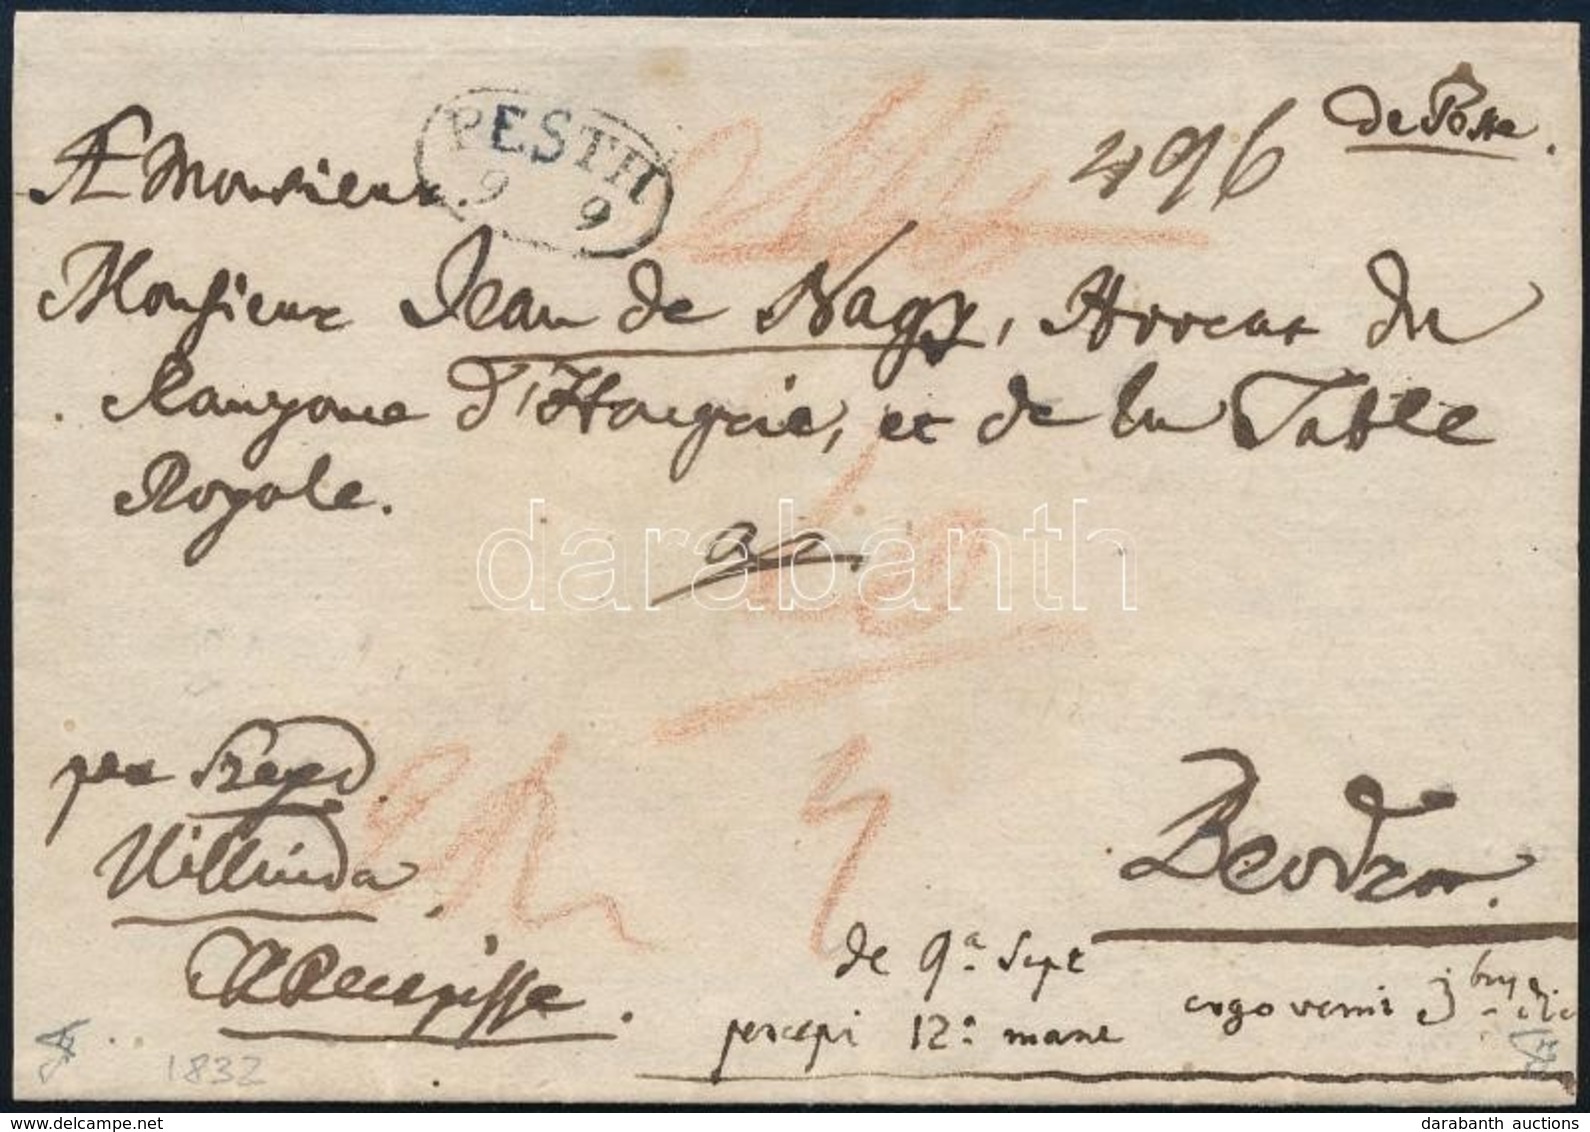 de Poste.
PESTH
9 9
496
A Monsieur
Monsieur Jean de Nagy, Avocat du
Royaume d'Hongrie, et de la Table
Royale.
à
per Szeged
Kikinda
Recepisse.
Beodra.
de 9ª Sept
percepi 12ª mane
ergo venit 3
1832
darabanth
www.delcampe.net
darabanth auctions